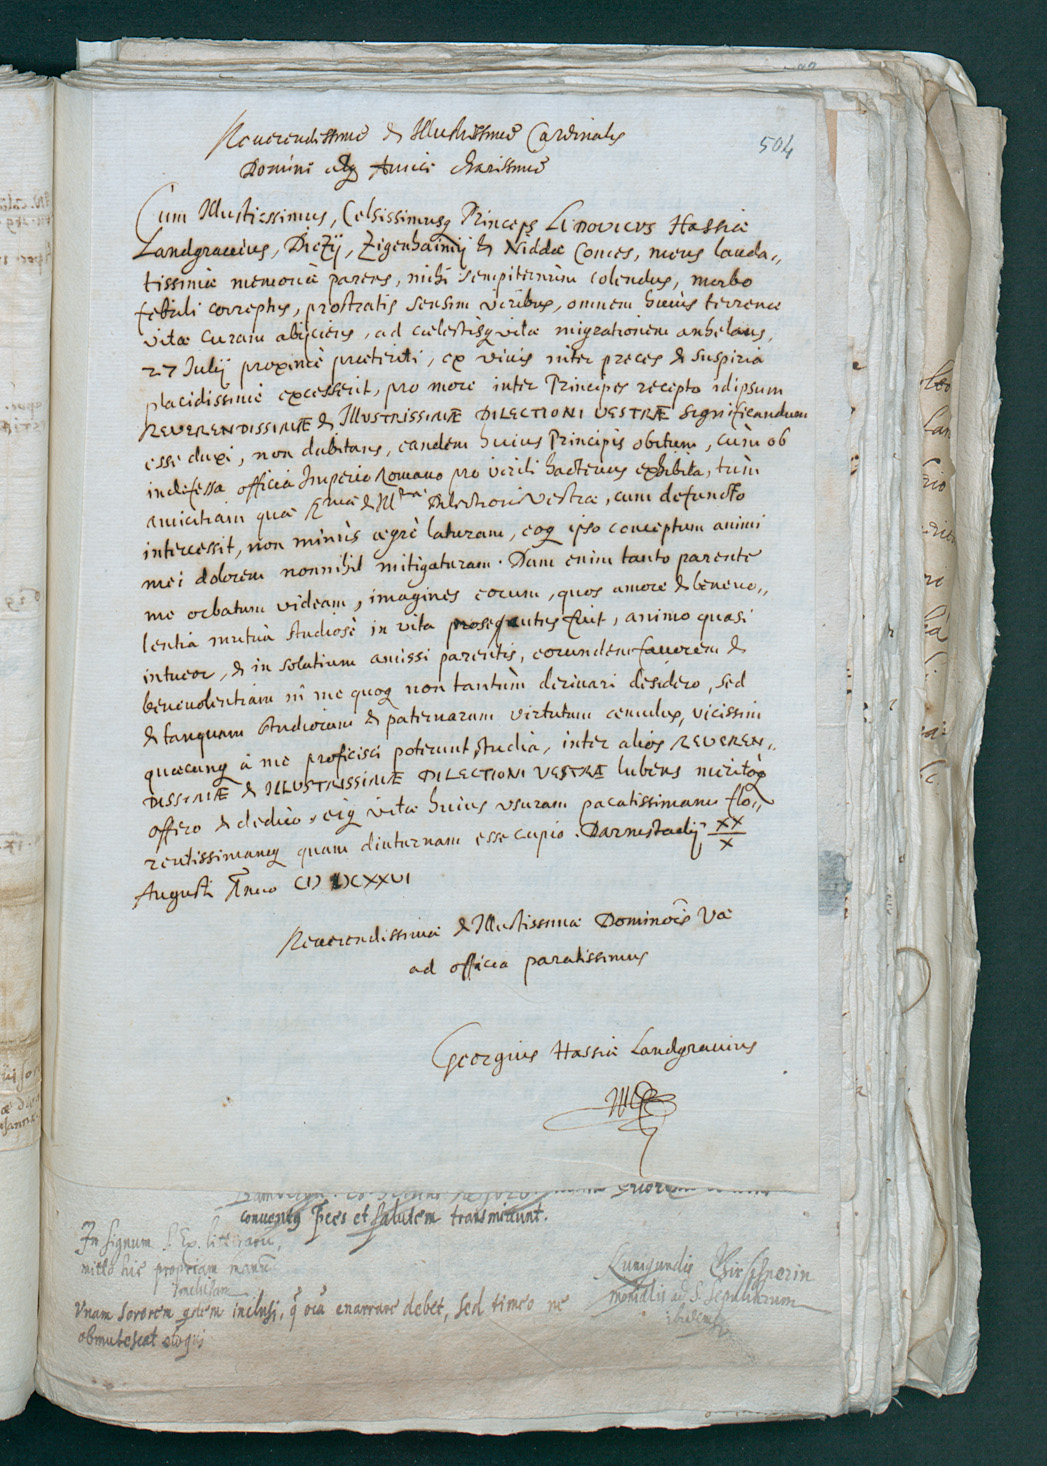 504
Reverendissime & Illustrissime Cardinalis
Domine atq Amice charissime
Cum Illustrissimus, Celsissimusq Princeps LUDOVICVS Hassiæ
Landgravius, Dietzij, Zigenhainij & Niddæ Comes, meus lauda„
tissimæ memoriæ parens, mihi sempiternùm colendus, morbo
febrili correptus, prostratis sensim viribus, omnem huius terrenæ
vitæ curam abijciens, ad cælestisq vitæ migrationem anhelans,
27 Julij proximè præteriti, ex vivis inter preces & suspiria
placidissimè excesserit, pro more inter Principes recepto idipsum
REVERENDISSIMÆ & ILLVSTRISSIMÆ DILECTIONI VESTRÆ significandum
esse duxi, non dubitans, eandem huius Principis obitum, cùm ob
indefessa officia Imperio Romano pro virili hactenus exhibita, tùm
amicitiam quæ Rmæ & Illmæ Dilectioni Vestræ, cum defuncto
intercessit, non minùs ægrè laturam, eoq ipso conceptum animi
mei dolorem nonnihil mitigaturam. Dum enim tanto parente
me orbatum videam, imagines eorum, quos amore & benevo„
lentia mutuâ studiosè in vita prosequutus fuit, animo quasi
intueor, & in solatium amissi parentis, eorundem favorem &
benevolentiam in me quoq non tantùm derivari desidero, sed
& tanquam studiorum & paternarum virtutum æmulus, vicissim
quæcunq à me proficisci poterunt studia, inter alios REVEREN„
DISSIMÆ & ILLUSTRISSIMÆ DILECTIONI VESTRÆ lubens meritòq
offero & dedico, eiq vitæ huius vsuram pacatissimam flo„
rentissimamq quam diuturnam esse cupio. Darmstadij XX/X
Augusti Anno CIↃ IↃCXXVI
Reverendissimæ & Illustissimæ Dominōis Væ
ad officia paratissimus
Georgius Hassiæ Landgravius
conventq pces et salutem transmittunt.
In signum
mitto hic propriam manū
inclusam
Vnam sororem inclusi, q oīa enarrare debet, sed timeo ne
obmutescat
Cunigundis
monialis ad S. Sepulchrum
ibidem